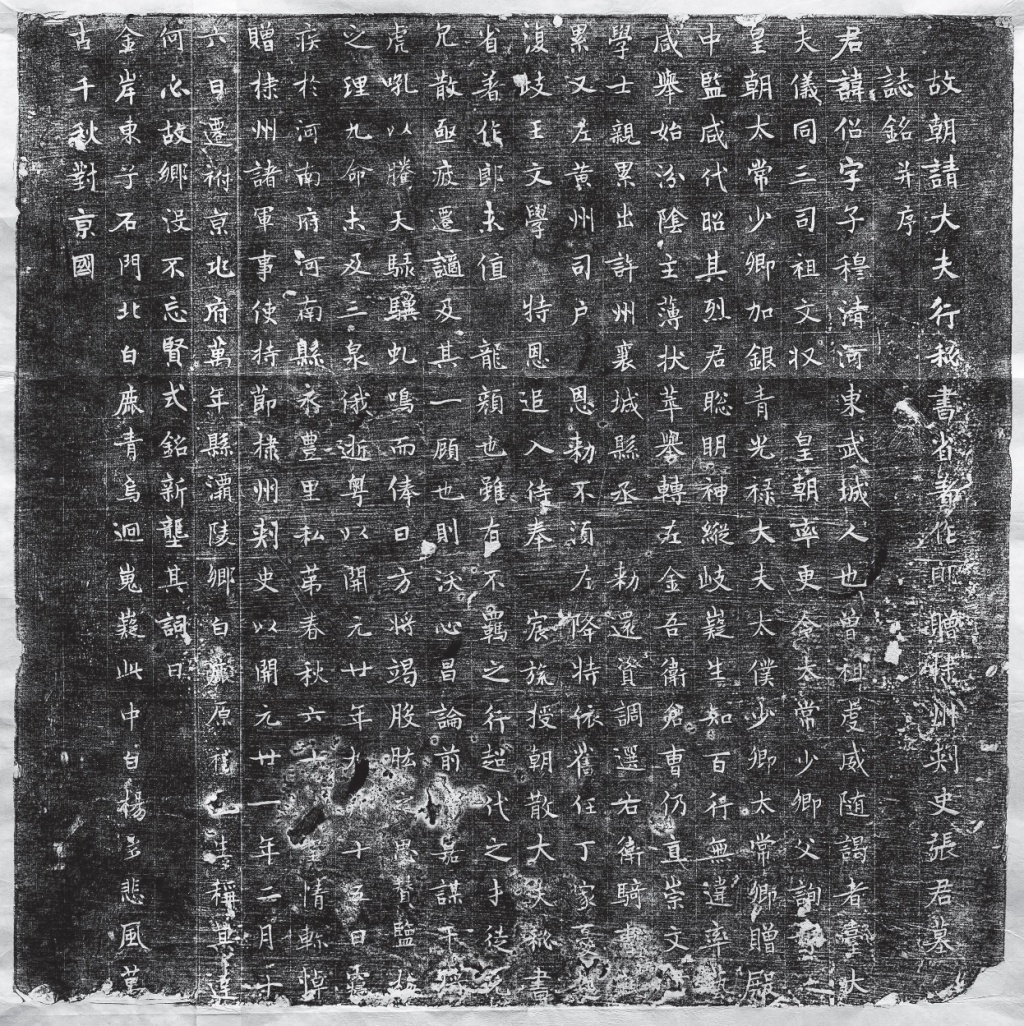 故朝請大夫行秘書省著作郎贈棣州刾史張君墓
誌銘并序
君諱侶字子穆清河東武城人也曾祖虔威隨謁者臺大
夫儀同三司祖文収 皇朝率更令太常少卿父詢
皇朝太常少卿加銀青光禄大夫太僕少卿太常卿贈殿
中監咸代昭其烈君聡明神縱岐嶷生知百行無違率
咸舉始汾陰主薄状萃舉轉左金吾衛倉曹仍直崇文
學士親累出許州襄城縣丞 勅還資調選右衛騎曹
累又左黄州司户 恩勅不須左降特依舊任丁家
復歧王文學 特恩追入待奉 宸旒授朝散大夫秘書
省著作郎未值龍顔也雖有不羈之行超代之才徒
兄散亟疲遷謫及其一顧也則沃心昌論前嘉謀
虎吼以騰天騄驥虬鳴而俸日方將竭股肱之思賛鹽
之理九命未及三泉俄逝粤以開元廿年 十五日
疾於河南府河南縣永豊里私苐春秋六十 情軫悼
贈棣州諸軍事使持節棣州刾史以開元廿一年二月十
六日遷祔京兆府萬年縣灞陵鄉白鹿原禮也 稱其達
何心故鄉没不忘賢式銘新壟其詞曰
金岸東子石門北白鹿青烏迴嵬嶷此中白楊多悲風萬
古千秋對京國